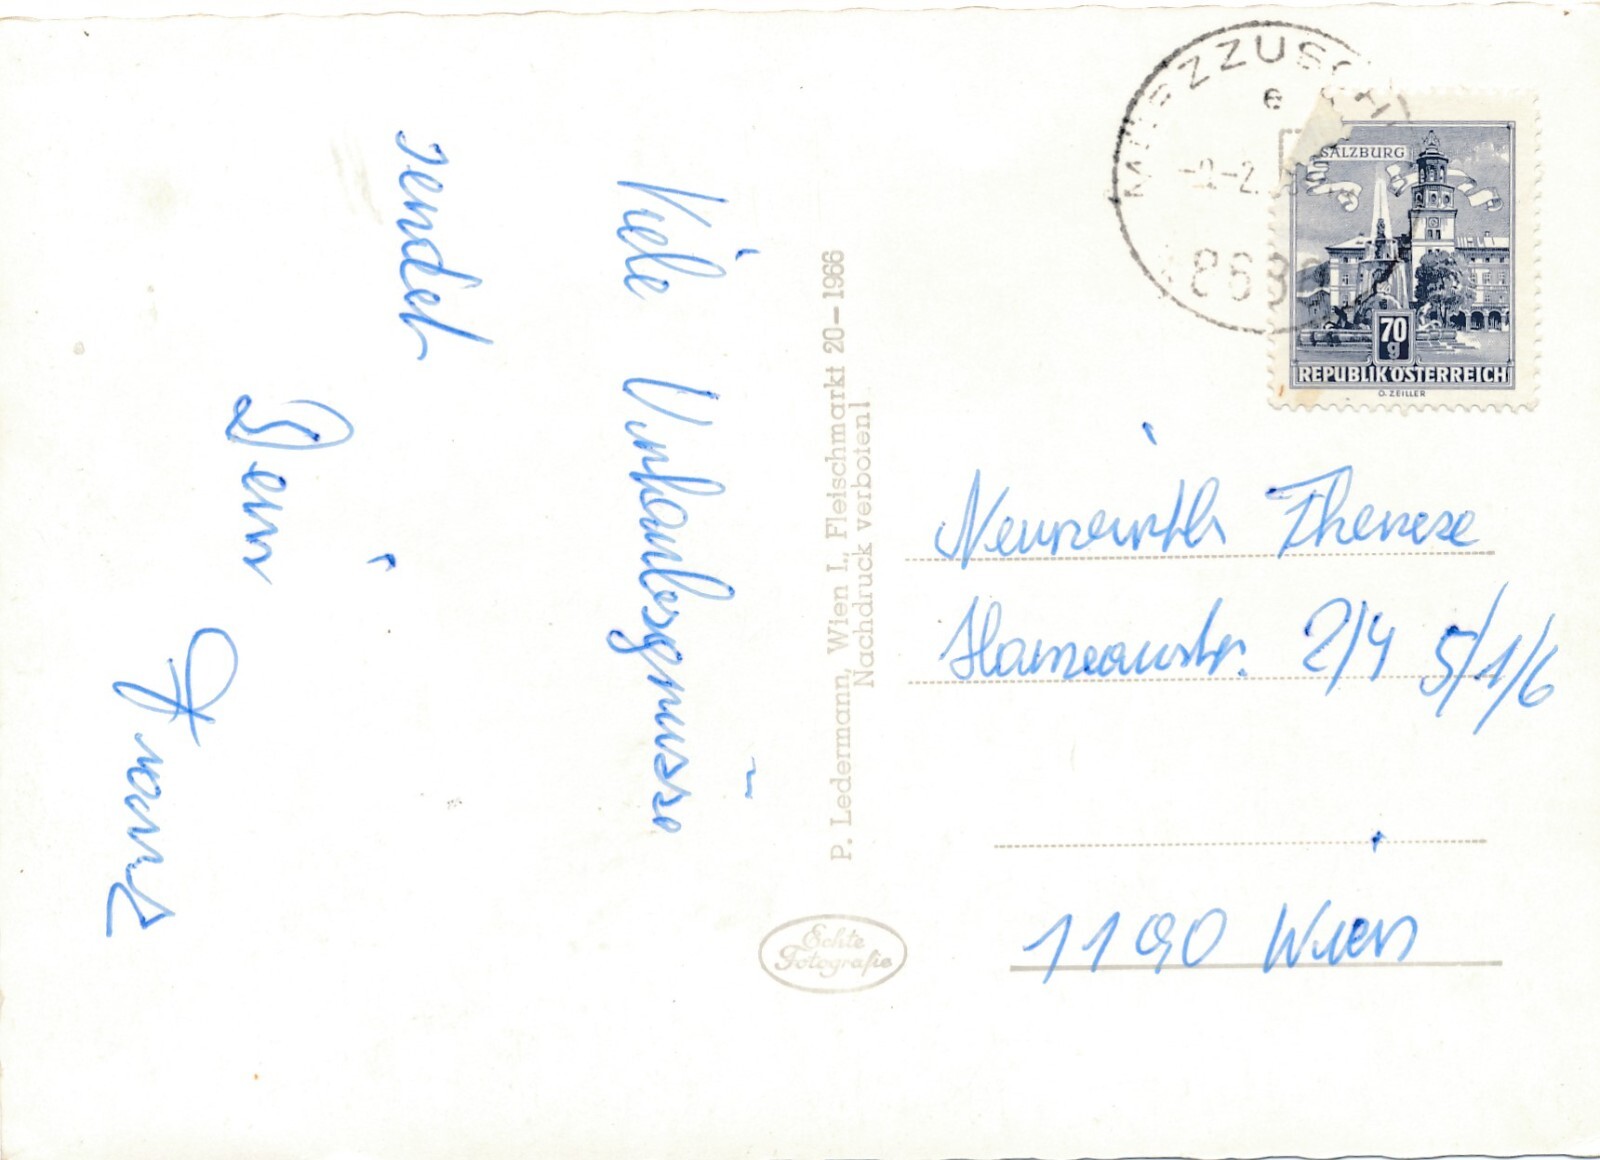 Viele Urlaubsgrüsse
sendet
Dein
Franz
P. Ledermann, Wien I., Fleischmarkt 20-1966
Nachdruck verboten!
Echte
Fotografie
MUERZZUSCH
e
8680
SALZBURG
70
g
REPUBLIK ÖSTERREICH
O. ZEILLER
Neuwirth Therese
Hameaustr. 2/4 5/1/6
1190 Wien